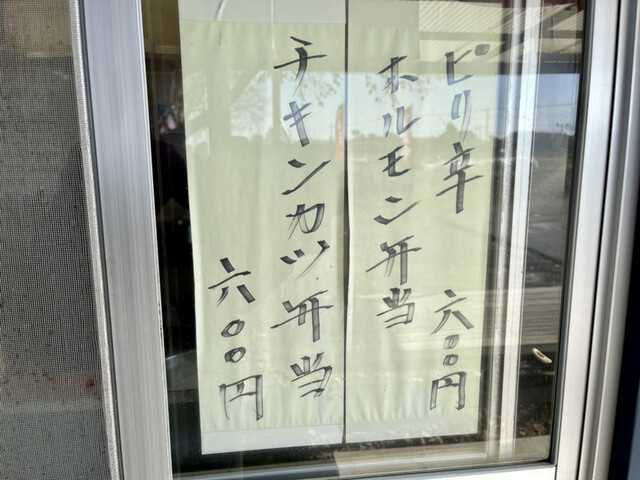 ピリ辛
ホルモン弁当
六〇〇円
チキンカツ弁当
六〇〇円